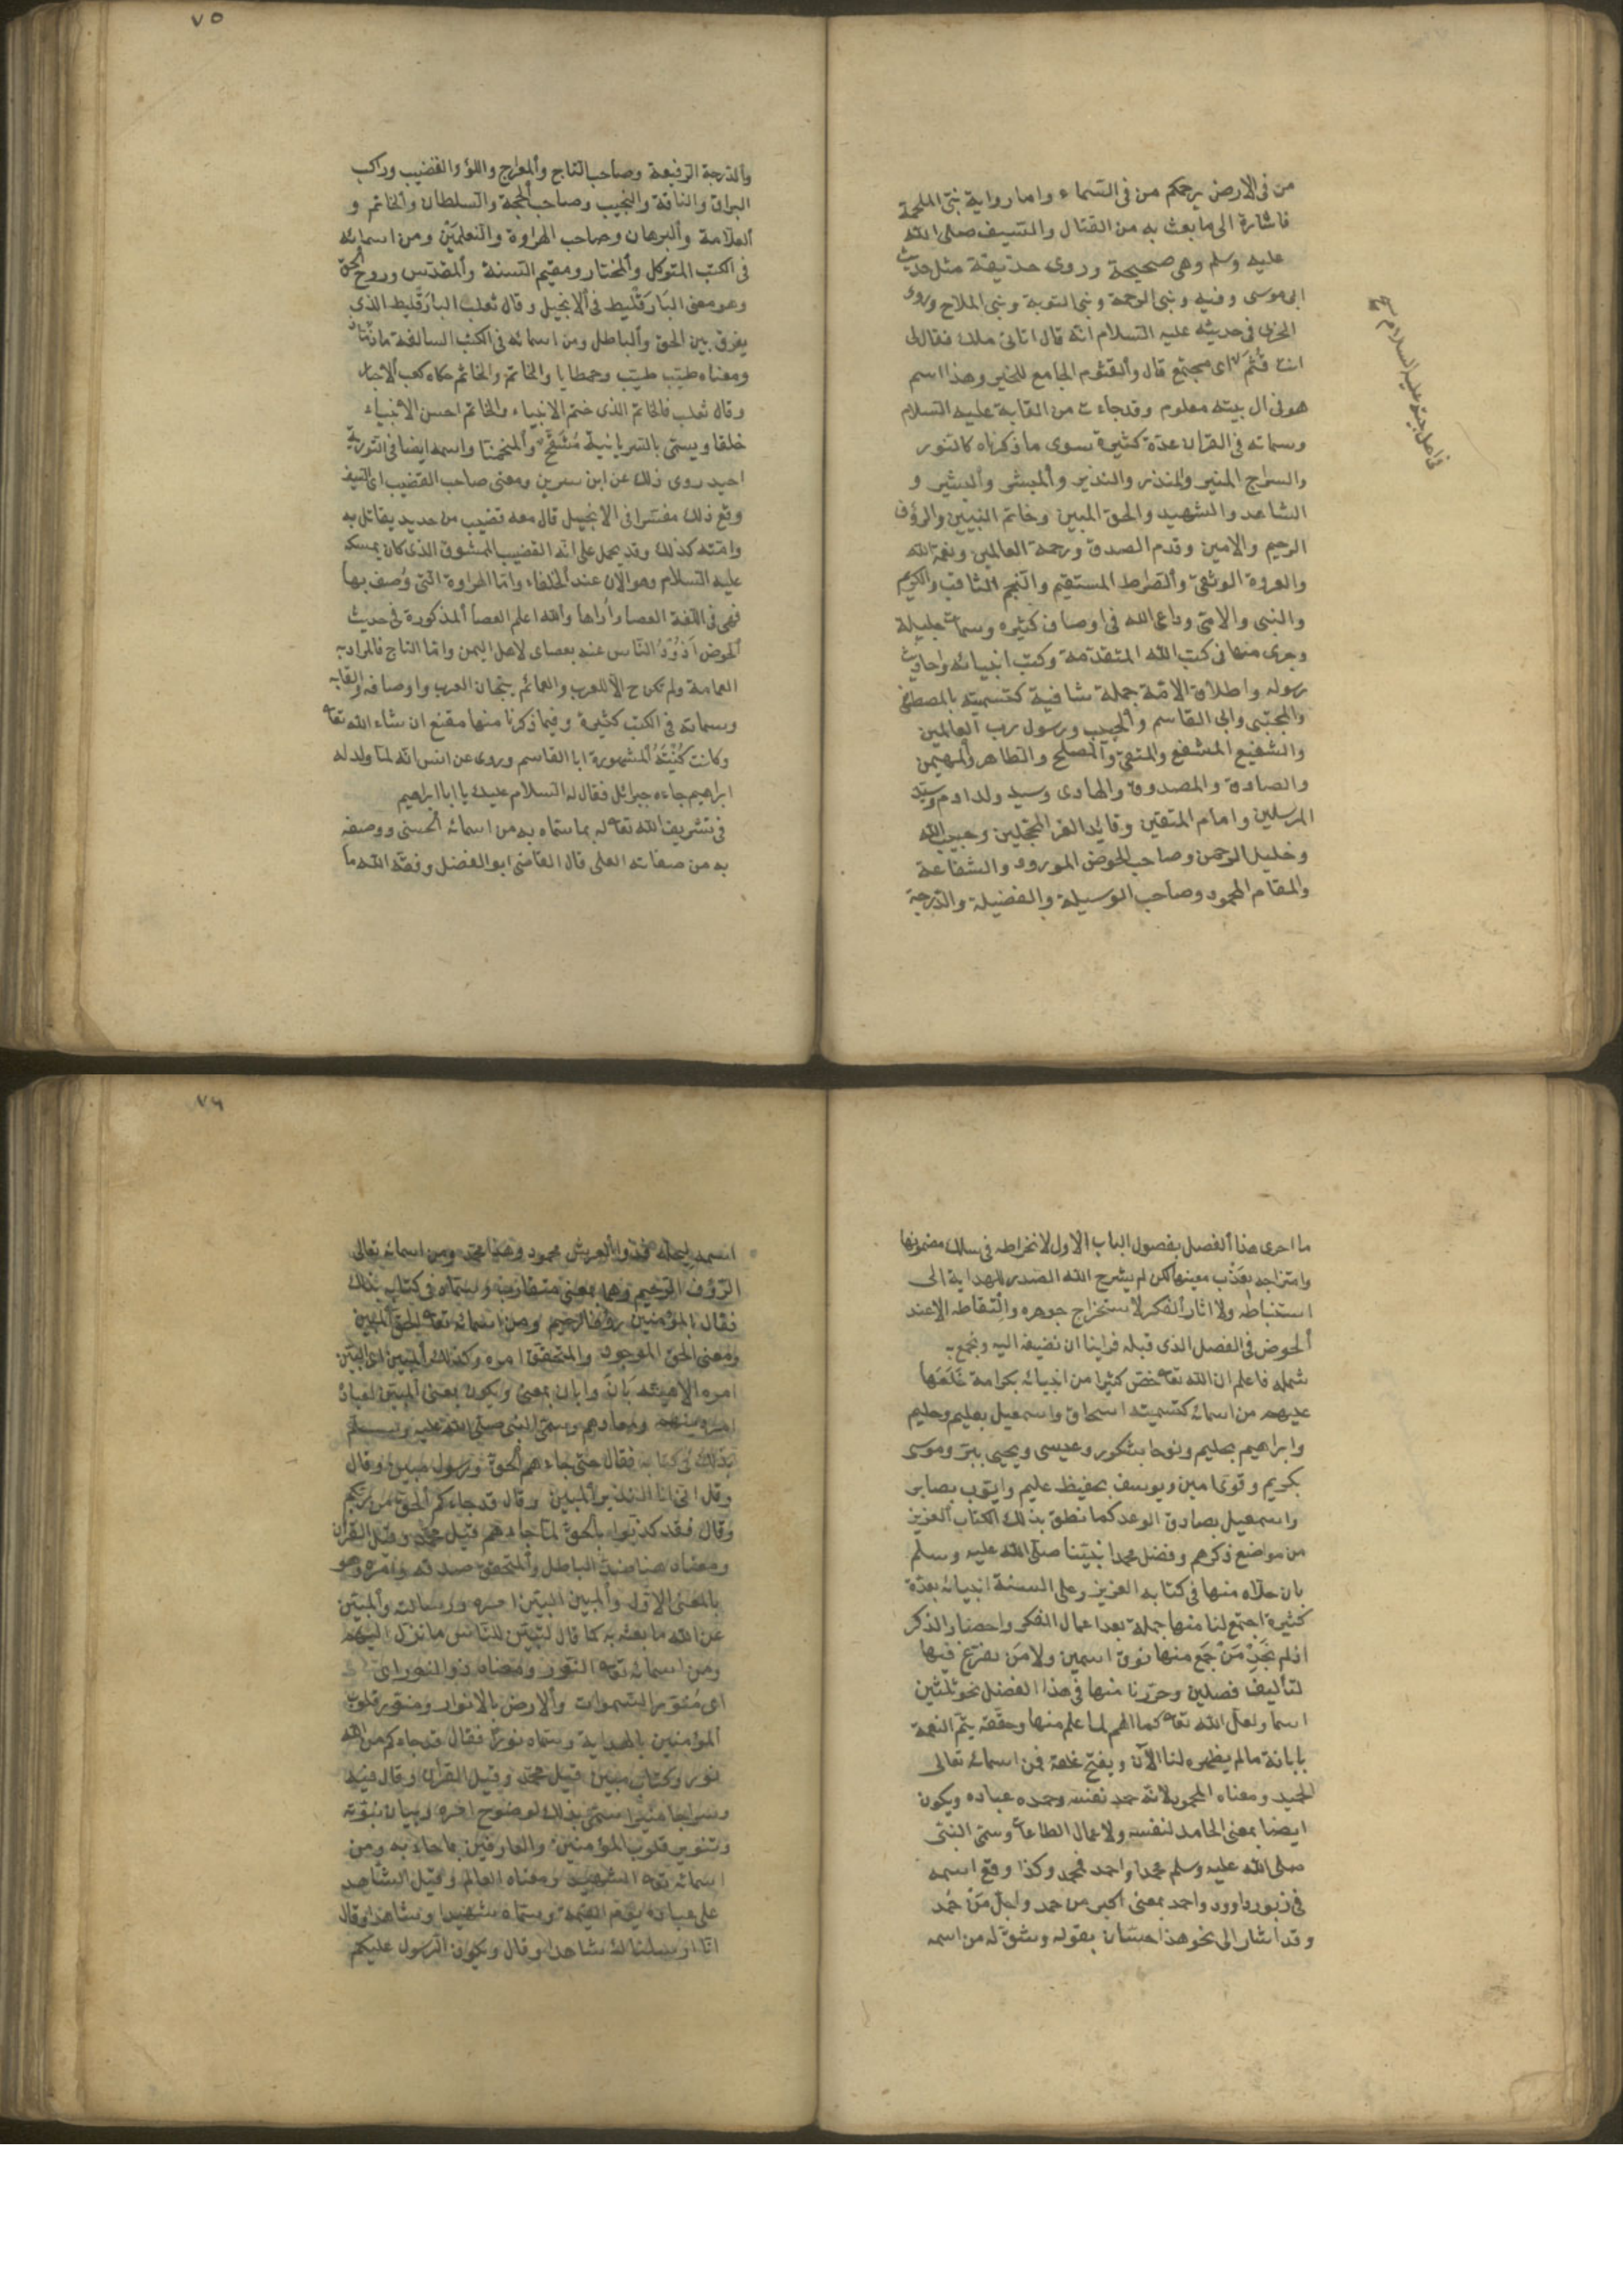 من في الارض يرحمكم من في السماء واما رواية نبي الملحمة
فاشارة الى ما بعث به من القتال والسيف صلى الله
عليه وسلم وهي صحيحة وروى حذيفة مثل حديث
ابى موسى وفيه ونبي الرحمة ونبي التوبة ونبي الملاحم وروى
الحربي في حديثه عليه السلام انه قال اتاني ملك فقال لي
انت قُثَمٌ اى مجتمع قال والقثوم الجامع للخير وهذا اسم
هو في ال بيته معلوم وقد جاءت من القابه عليه السلام
وسماته في القران عدة كثيرة سوى ما ذكرناه كالنور
والسراج المنير والمنذر والنذير والمبشر والبشير و
الشاهد والشهيد والحق المبين وخاتم النبيين والرؤف
الرحيم والامين وقدم الصدق ورحمة للعالمين ونعمة الله
والعروة الوثقى والصراط المستقيم والنجم الثاقب والكريم
والنبي والامي وداعي الله في اوصاف كثيره وسمات جليلة
وجرى منها في كتب الله المتقدمة وكتب انبيائه واحاديث
رسوله واطلاق الامة جملة شافية كتسميته بالمصطفى
والمجتبى وابى القاسم والحبيب ورسول رب العالمين
والشفيع المشفع والمتقى والمصلح والطاهر والمهيمن
والصادق والمصدوق والهادى وسيد ولد ادم وسيد
المرسلين وامام المتقين وقائد الغر المحجلين وحبيب الله
وخليل الرحمن وصاحب الحوض المورود والشفاعة
والمقام المحمود وصاحب الوسيلة والفضيلة والدرجة
٧٥
والدرجة الرفيعة وصاحب التاج والمعراج واللؤ والقضيب وراكب
البراق والناقة والنجيب وصاحب الحجة والسلطان والخاتم و
العلامة والبرهان وصاحب الهراوة والنعلين ومن اسمائه
في الكتب المتوكل والمختار ومقيم السنة والمقدس وروح الحق
وهو معنى البَارَقْليط في الانجيل وقال ثعلب البارقليط الذي
يفرق بين الحق والباطل ومن اسمائه في الكتب السالفة
ومعناه طيب طيب وحمطايا والخاتم والخاتم حكاه كعب الاحبار
وقال ثعلب فالخاتم الذى ختم الانبياء والخاتم احسن الانبياء
خلقا ويسمى بالسريانية مُشَفَّحْ والمنحمنا واسمه ايضا في التورية
احيد روى ذلك عن ابن سيرين ومعنى صاحب القضيب اى السيف
وقع ذلك مفسرا في الانجيل قال معه قضيب من حديد يقاتل به
وامته كذلك وقد يحمل على انه القضيب الممشوق الذى كان يمسكه
عليه السلام وهو الآن عند الخلفاء واما الهراوة التى وُصف بها
فهى في اللغة العصا واُراها والله اعلم العصا المذكورة في حديث
الحوض اَذُوْدُ النَّاس عنه بعصاى لاهل اليمن واما التاج فالمراد به
العمامة ولم تكن ح الا للعرب والعمائم تيجان العرب واوصافه والقابه
وسماته في الكتب كثيرة وفيما ذكرنا منها مقنع ان شاء الله تعا
وكانت كُنْيَتُهُ المشهورة ابا القاسم وروى عن انس انه لما ولد له
ابراهيم جاءه جبرائل فقال له السلام عليك يا ابا ابراهيم
في تشريف الله تعا له بما سماه به من اسمائه الحسنى ووصفه
به من صفاته العلى قال القاضى ابو الفضل وفقه الله ما
ما احرى هذا الفصل بفصول الباب الاول لانخراطه في سلك مضمونها
وامتزاجه بعَذْب معينها لكن لم يشرح الله الصدر للهداية الى
استنباطه ولا اثار الفكر لاستخراج جوهره والتقاطه الا عند
الخوض في الفصل الذى قبله فراينا ان نضيفه اليه ونجمع به
شمله فاعلم ان الله تعا خص كثيرا من انبيائه بكرامة خَلَعَها
عليهم من اسمائه كتسميته اسحاق واسمعيل بعليم وحليم
وابراهيم بحليم ونوحا بشكور وعيسى ويحيى ببرّ وموسى
بكريم وقوى امين ويوسف بحفيظ عليم وايوب بصابر
واسمعيل بصادق الوعد كما نطق بذلك الكتاب العزيز
من مواضع ذكرهم وفضل محمدا نبيّنا صلى الله عليه وسلم
بان حلاه منها في كتابه العزيز وعلى السنة انبيائه بعدّة
كثيرة اجتمع لنا منها جملة بعد اعمال الفكر واحضار الذكر
اذ لم نَجِدْ مَنْ جَمَع منها فوق اسمين ولا مَن تفرّغ فيها
لتأليف فصلين وحرّرنا منها في هذا الفصل نحو ثلثين
اسما ولعل الله تعا كما الهم لما علم منها وحققه يتمّ النعمة
بابانة ما لم يظهره لنا الآن ويفتح غلقه فمن اسمائه تعالى
الحميد ومعناه المحمود لانه حمد نفسه وحمده عباده ويكون
ايضا بمعنى الحامد لنفسه ولاعمال الطاعات وسمى النبى
صلى الله عليه وسلم محمدا واحمد فمحمد وكذا وقع اسمه
في زبور داوود واحمد بمعنى اكبر من حمد واجلّ مَنْ حُمد
وقد اشار الى نحو هذا حسّان بقوله وشقّ له من اسمه
٧٦
اسمه ليجلّه فذو العرش محمود وهذا محمد ومن اسمائه تعالى
الرؤف الرحيم وهما بمعنى متقارب وسماه في كتابه بذلك
فقال بالمؤمنين رؤف رحيم ومن اسمائه تعا الحق المبين
ومعنى الحق الموجود والمتحقق امره وكذلك المبين اى البيّن
امره الالهيته بَانَ وابان بمعنى ويكون بمعنى المبيّن لعباده
امر دينهم ومعادهم وسمى النبى صلى الله عليه وسلم
بذلك في كتابه فقال حتى جاءهم الحق ورسول مبين وقال
وقل انى انا النذير المبين وقال قد جاءكم الحق من ربكم
وقال فقد كذبوا بالحق لما جاءهم قيل محمد وقيل القران
ومعناه هنا ضدّ الباطل والمتحقق صدقه وامره وهو
بالمعنى الاوّل والمبين البيّن امره ورسالته والمبيّن
عن الله ما بعثه به كما قال لتبيّن للناس ما نزل اليهم
ومن اسمائه تعا النور ومعناه ذو النور اى
اى مُنوّر السموات والارض بالانوار ومنوّر قلوب
المؤمنين بالهداية وسماه نورا فقال قد جاءكم من الله
نور وكتاب مبين قيل محمد وقيل القران وقال فيه
وسراجا منيرا سمى بذلك لوضوح امره وبيان نبوّته
وتنوير قلوب المؤمنين والعارفين بما جاء به ومن
اسمائه تعا الشهيد ومعناه العالم وقيل الشاهد
على عباده يوم القيمة وسماه شهيدا وشاهدا وقال
انا ارسلناك شاهدا وقال ويكون الرسول عليكم